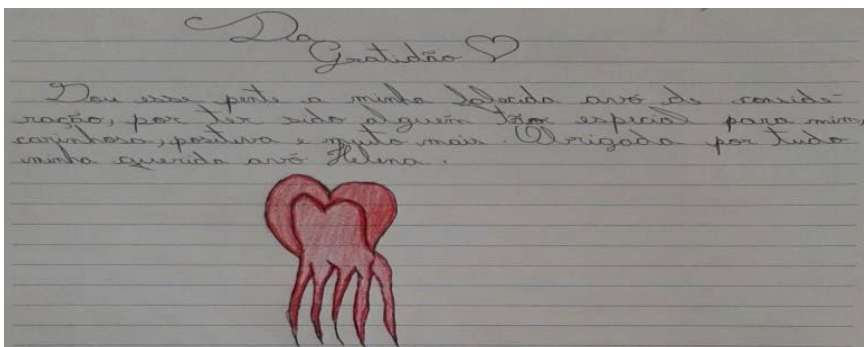 Da
Gratidão
Dou esse pente a minha falecida avó de conside-
ração, por ter sido alguém tão especial para mim,
carinhosa, positiva e muito mais. Obrigada por tudo
minha querida avó Helena.